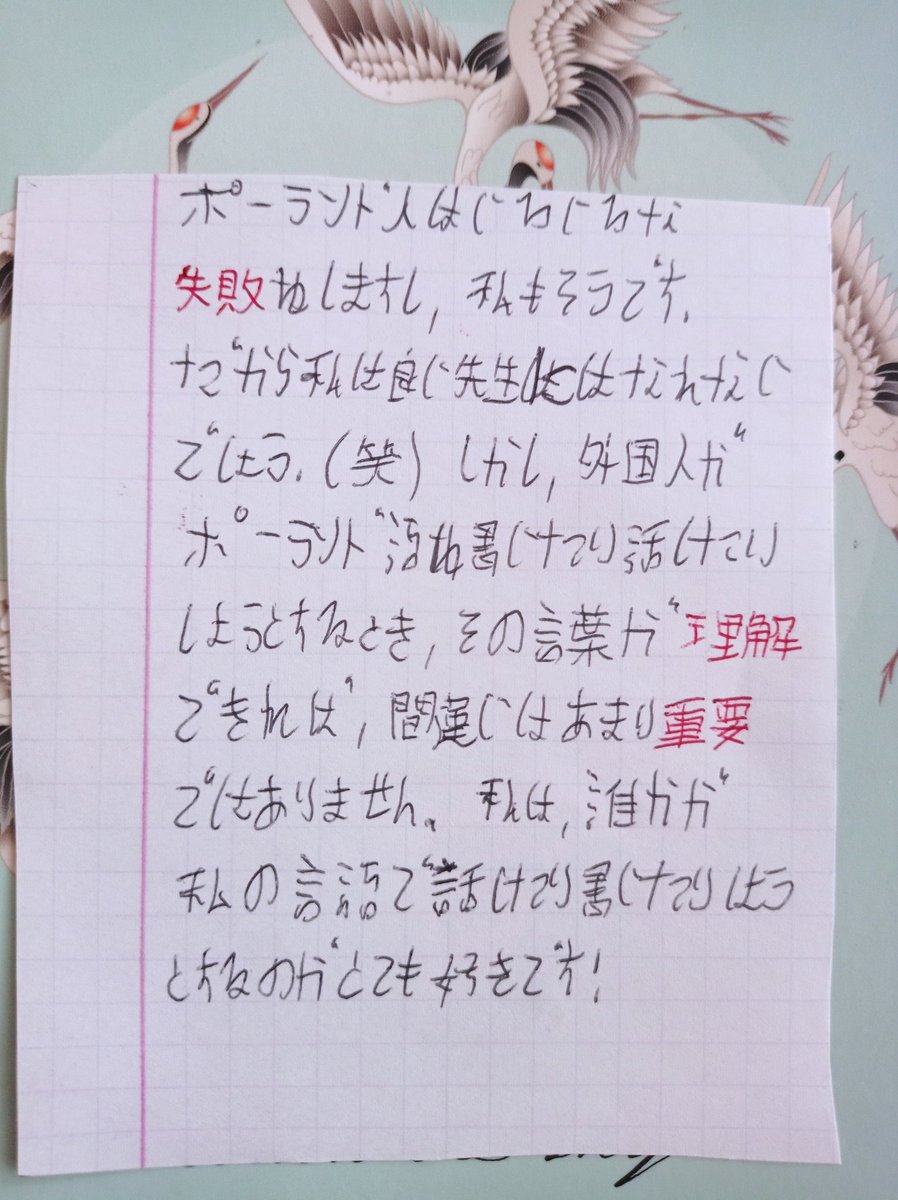 ポーランド人はいろいろな
失敗をしますし,私もそうです.
だから私は良い先生にはなれない
でしょう.(笑)しかし,外国人が
ポーランド語を書いたり話したり
しようとするとき,その言葉が理解
できれば,間違いはあまり重要
ではありません.私は,誰かが
私の言語で話したり書いたりしよう
とするのがとても好きです!